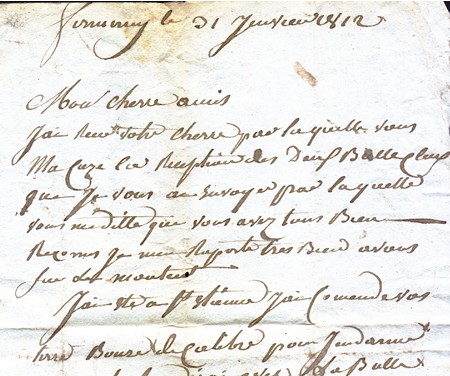 le 31 Janvier 1812
Mon cherre amis
J'ai Reçu votre cherre par laquelle vous
la Reception des Deux Balle
que Je vous ai envoyer par laquelle
vous me ditte que vous avez tous Bien
Reconus Je me Raporte tres Bien a vous
sur Le montent
J'ai eté a St Etienne J'ai Comende vos
Bouze de Calibre pour Jendarme
La Balle